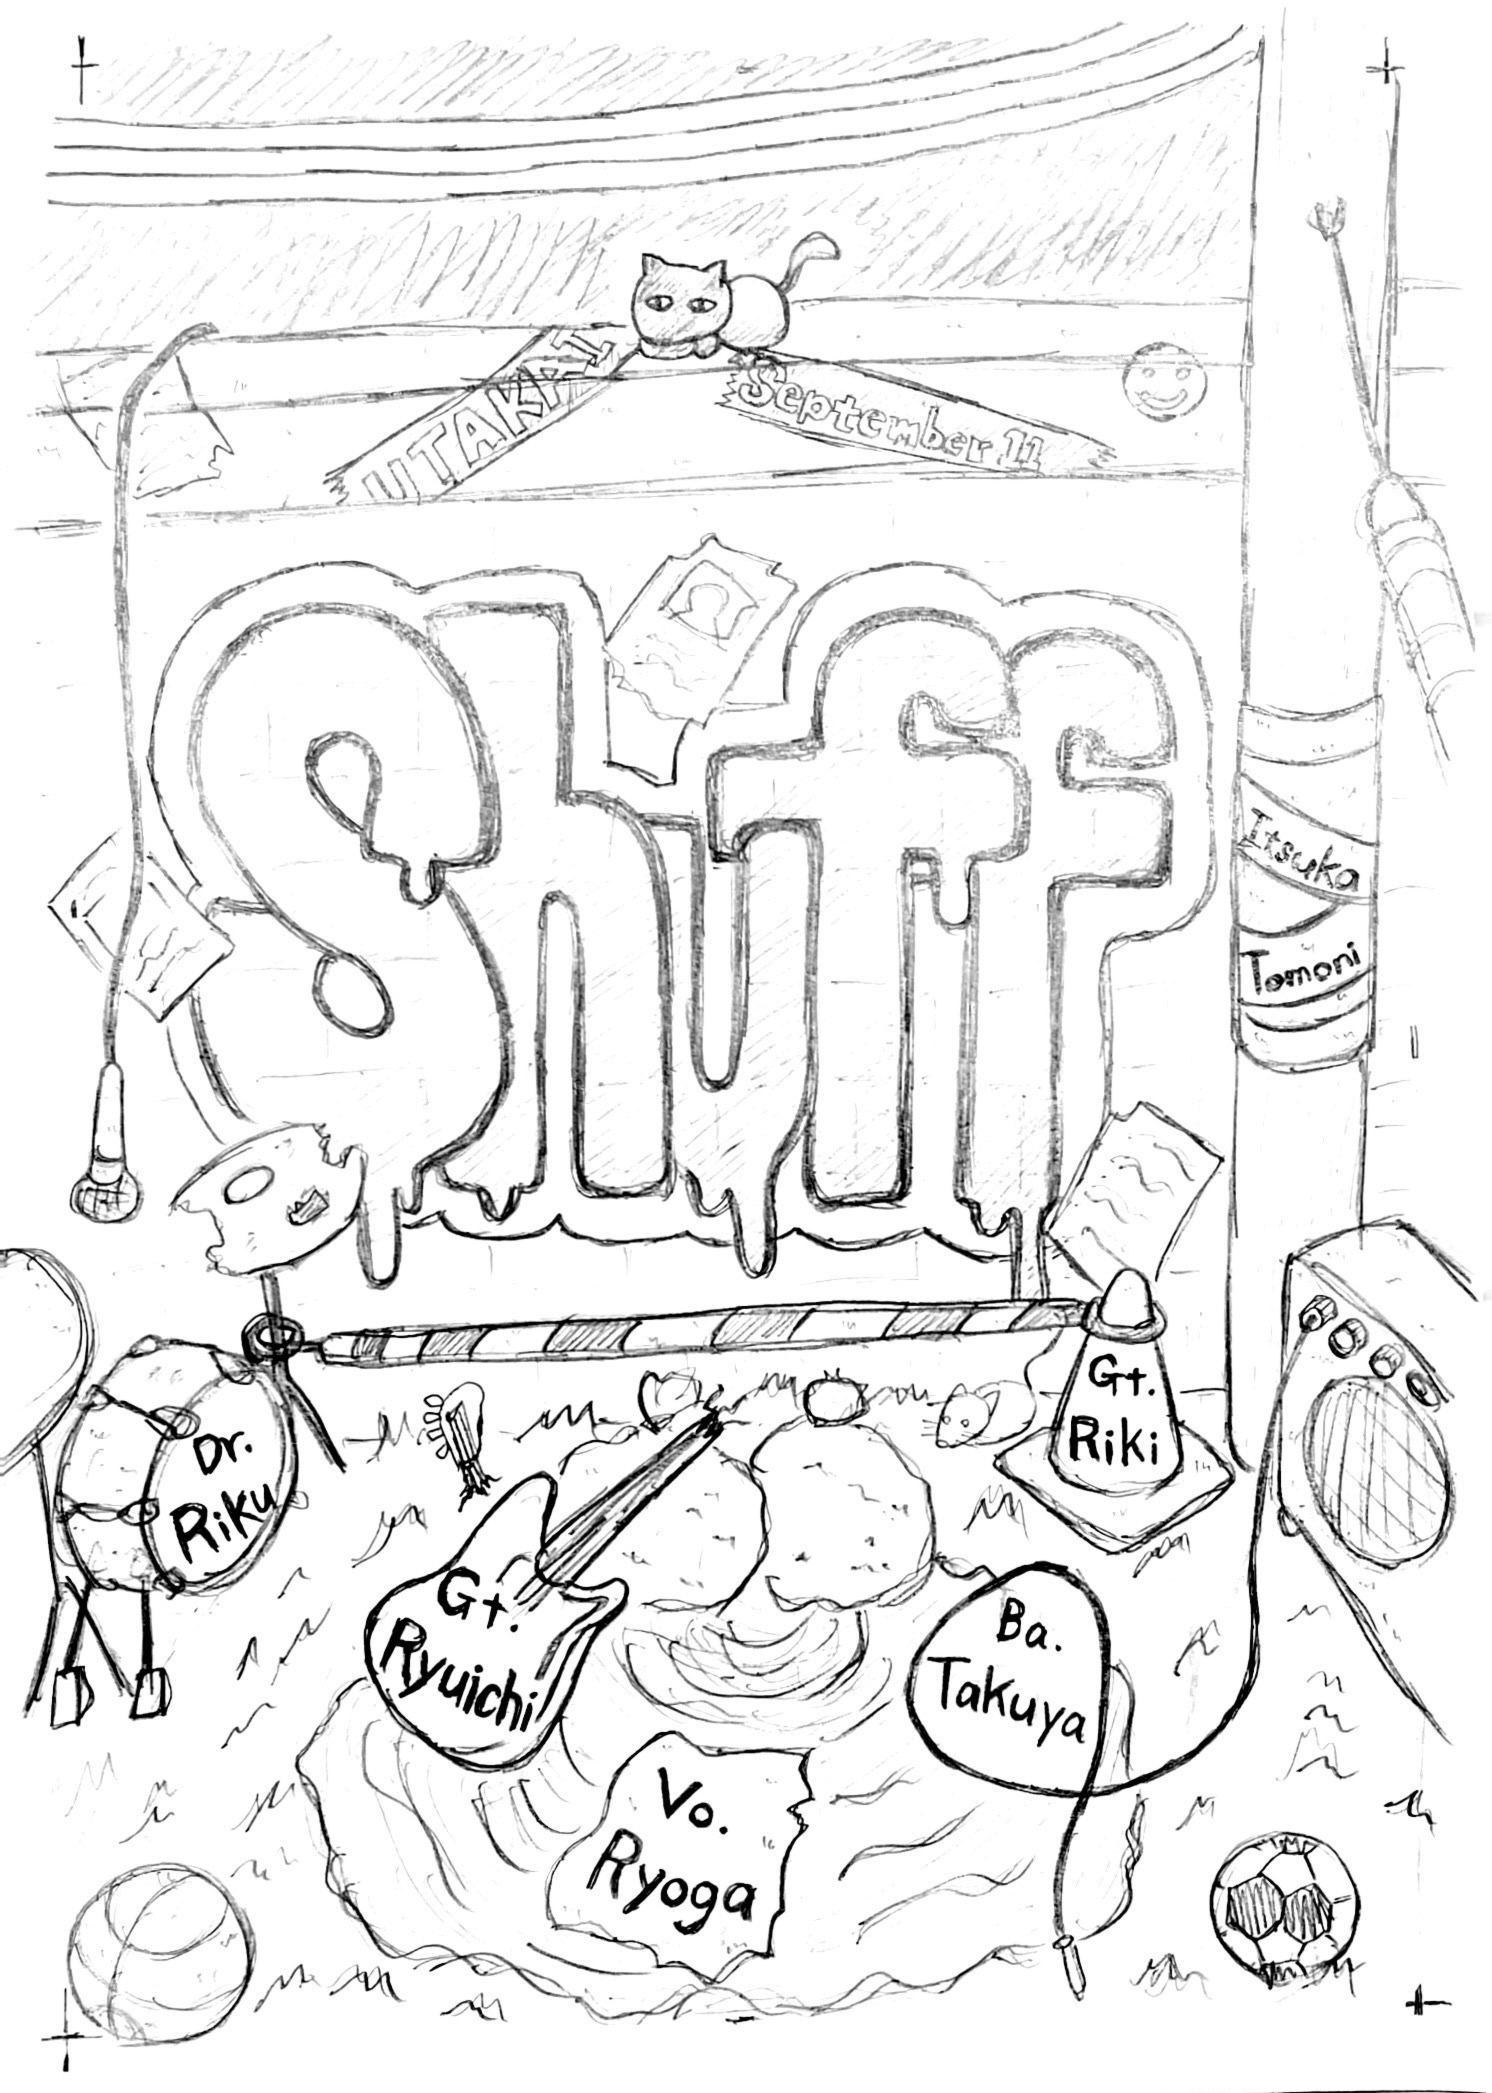 UTAKAI
September 11
Shuff
Itsuka
Tomoni
Gt.
Riki
Dr.
Riku
Gt.
Ryuichi
Ba.
Takuya
Vo.
Ryoga